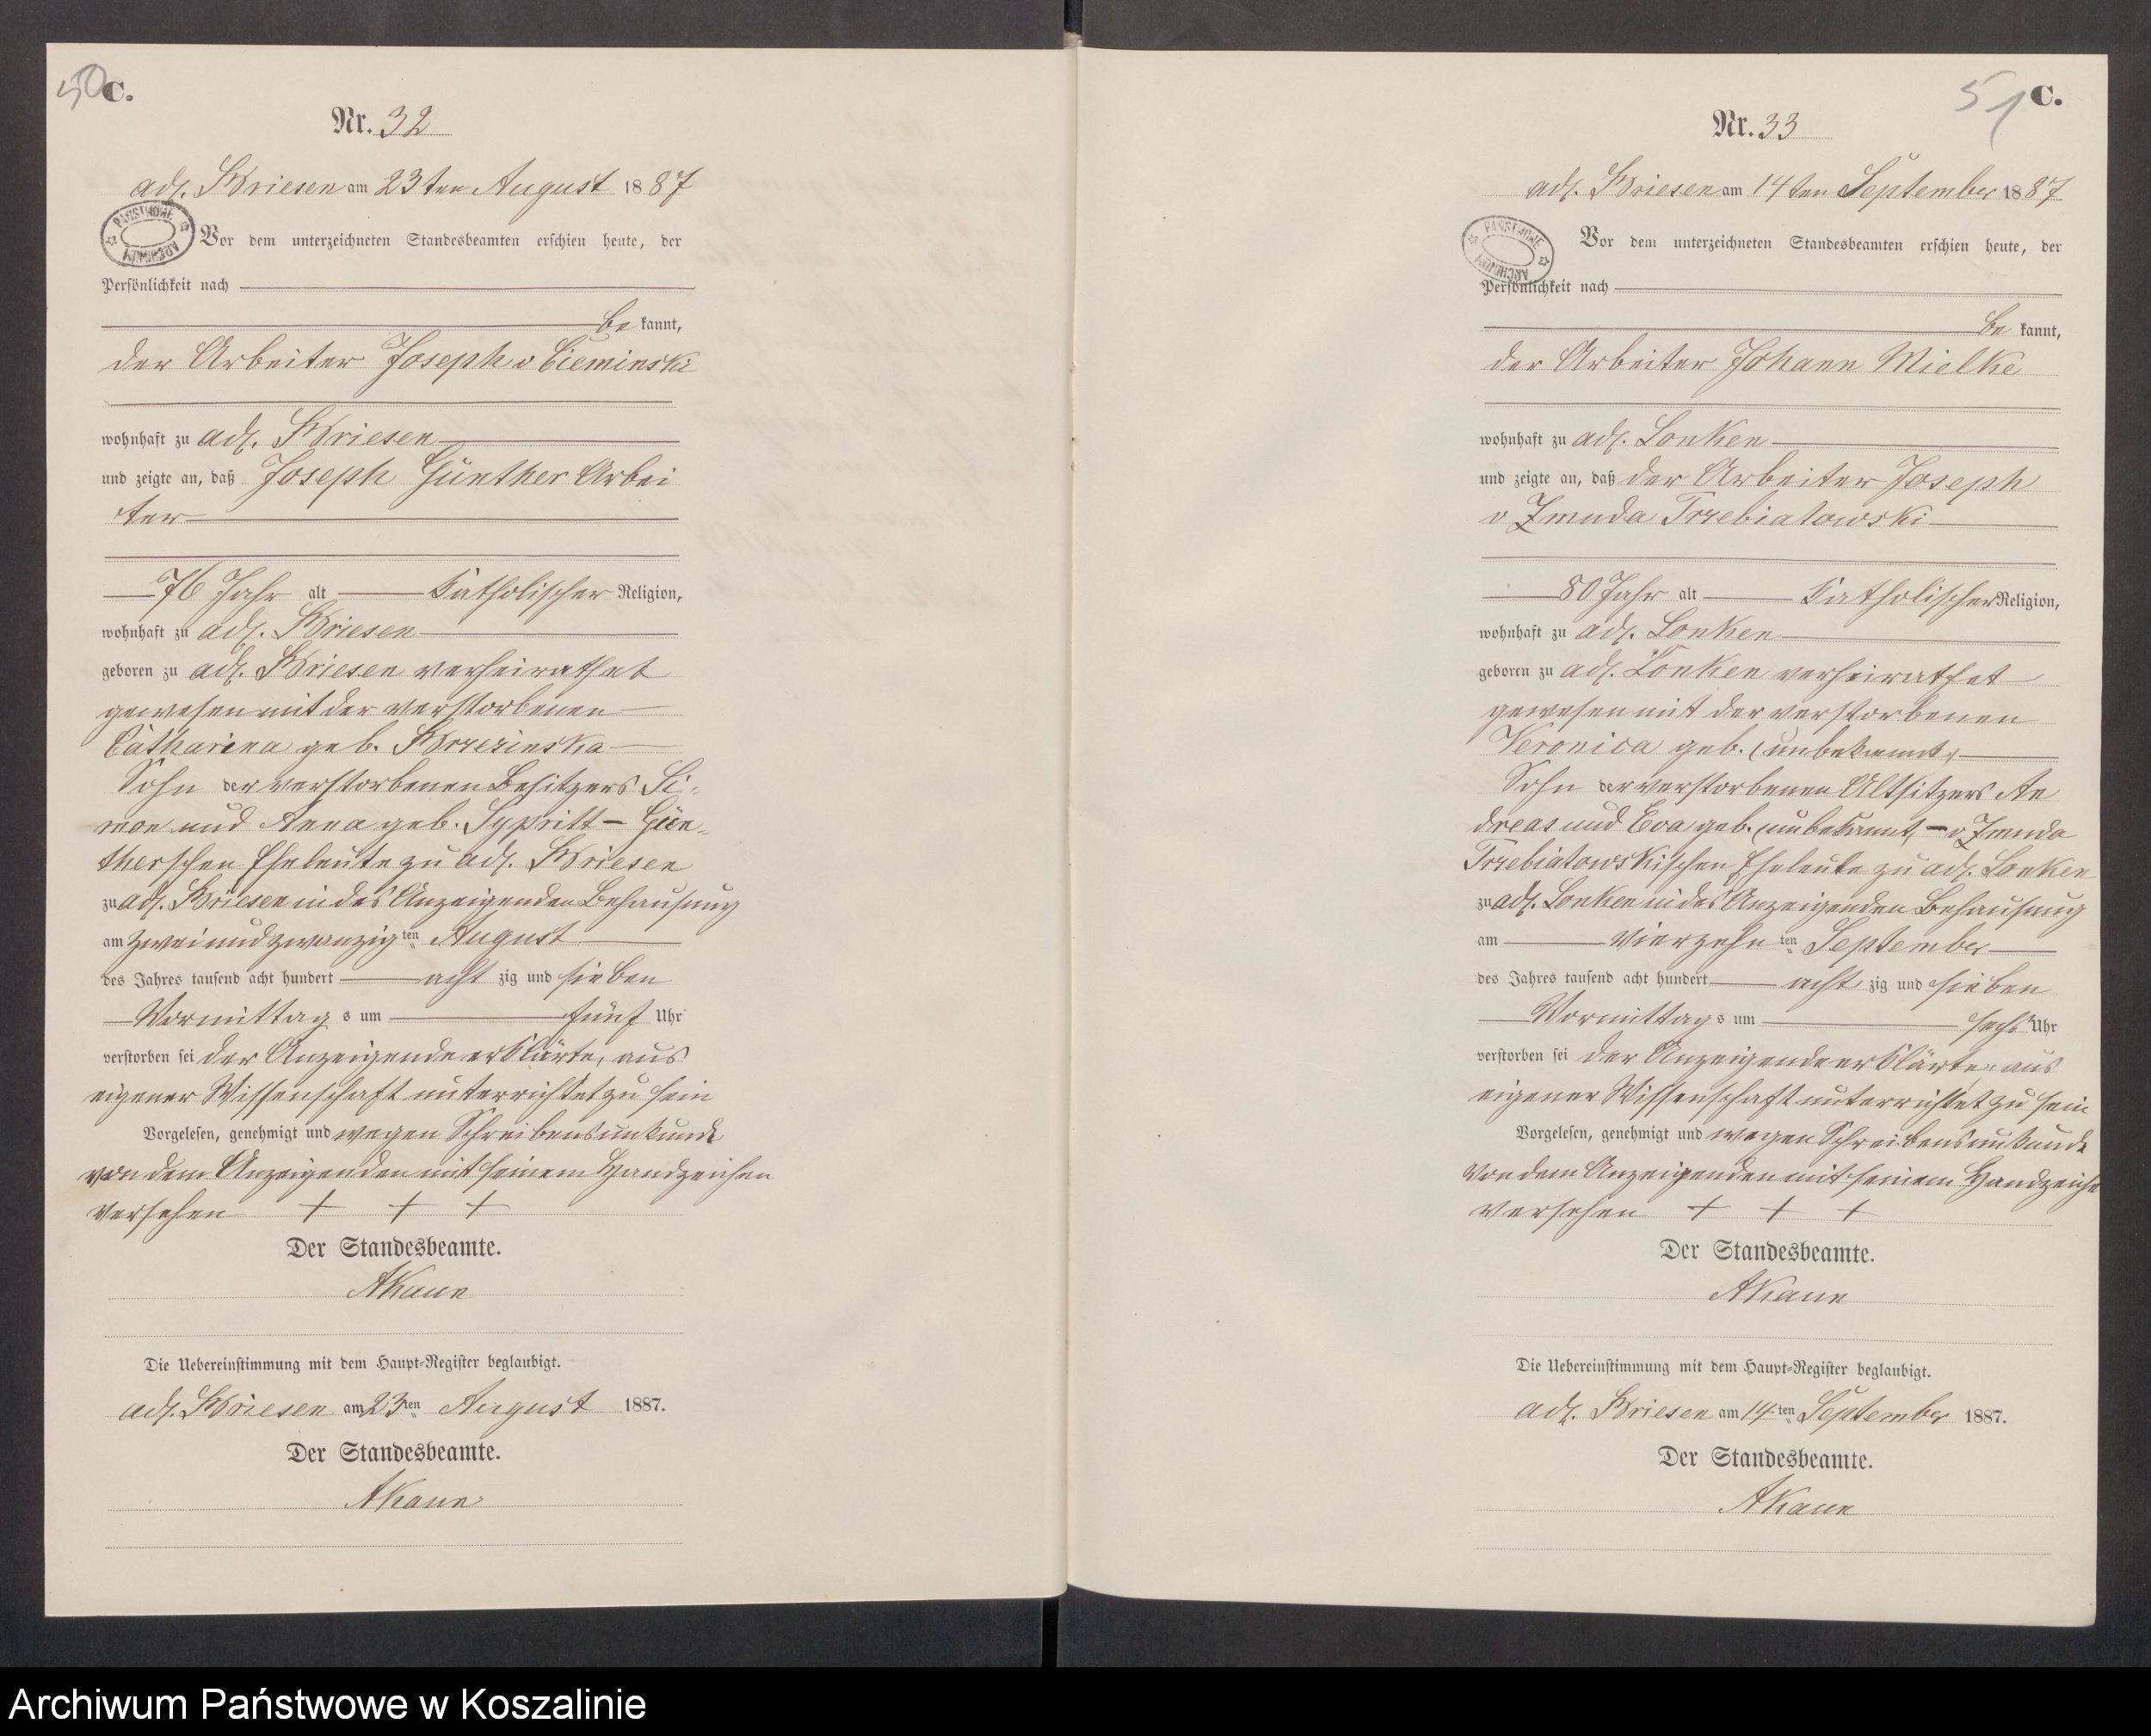 50 C.
Nr. 32
adl. Briesen am 23ten August 1887
PAŃSTWOWE ARCHIWUM
Vor dem unterzeichneten Standesbeamten erschien heute, der
Persönlichkeit nach
be kannt,
der Arbeiter Joseph v Cieminski
wohnhaft zu adl. Briesen
und zeigte an, daß Joseph Günther Arbei
ter
76 Jahr alt Katholischer Religion,
wohnhaft zu adl. Briesen
geboren zu adl. Briesen verheirathet
gewesen mit der verstorbenen
Catharina geb. Brzezinska
Sohn der verstorbenen Besitzers Si-
mon und Anna geb. Sypritt - Gün-
therschen Eheleute zu adl. Briesen
zu adl. Briesen in des Anzeigenden Behausung
am zwei und zwanzigten August
des Jahres tausend acht hundert acht zig und sieben
Vormittag s um fünf Uhr
verstorben sei der Anzeigende erklärte, aus
eigener Wissenschaft unterrichtet zu sein
Vorgelesen, genehmigt und wegen Schreibensunkunde
von dem Anzeigenden mit seinem Handzeichen
versehen + + +
Der Standesbeamte.
AKaun
Die Uebereinstimmung mit dem Haupt-Register beglaubigt.
adl. Briesen am 23ten August 1887.
Der Standesbeamte.
AKaun
51 C.
Nr. 33
adl. Briesen am 14ten September 1887
PAŃSTWOWE ARCHIWUM
Vor dem unterzeichneten Standesbeamten erschien heute, der
Persönlichkeit nach
be kannt,
der Arbeiter Johann Mielke
wohnhaft zu adl. Lonken
und zeigte an, daß der Arbeiter Joseph
v Zmuda Trzebiatowski
80 Jahr alt Katholischer Religion,
wohnhaft zu adl. Lonken
geboren zu adl. Lonken verheirathet
gewesen mit der verstorbenen
Veronica geb. (unbekannt)
Sohn der verstorbenen Altsitzers An
dreas und Eva geb. (unbekannt) - v. Zmuda
Trzebiatowskischen Eheleute zu adl. Lonken
zu adl. Lonken in des Anzeigenden Behausung
am vierzehn ten September
des Jahres tausend acht hundert acht zig und sieben
Vormittag s um sechs Uhr
verstorben sei der Anzeigende erklärte, aus
eigener Wissenschaft unterrichtet zu sein
Vorgelesen, genehmigt und wegen Schreibensunkunde
von dem Anzeigenden mit seinem Handzeiche
versehen + + +
Der Standesbeamte.
AKaun
Die Uebereinstimmung mit dem Haupt-Register beglaubigt.
adl. Briesen am 14ten September 1887.
Der Standesbeamte.
AKaun
Archiwum Państwowe w Koszalinie